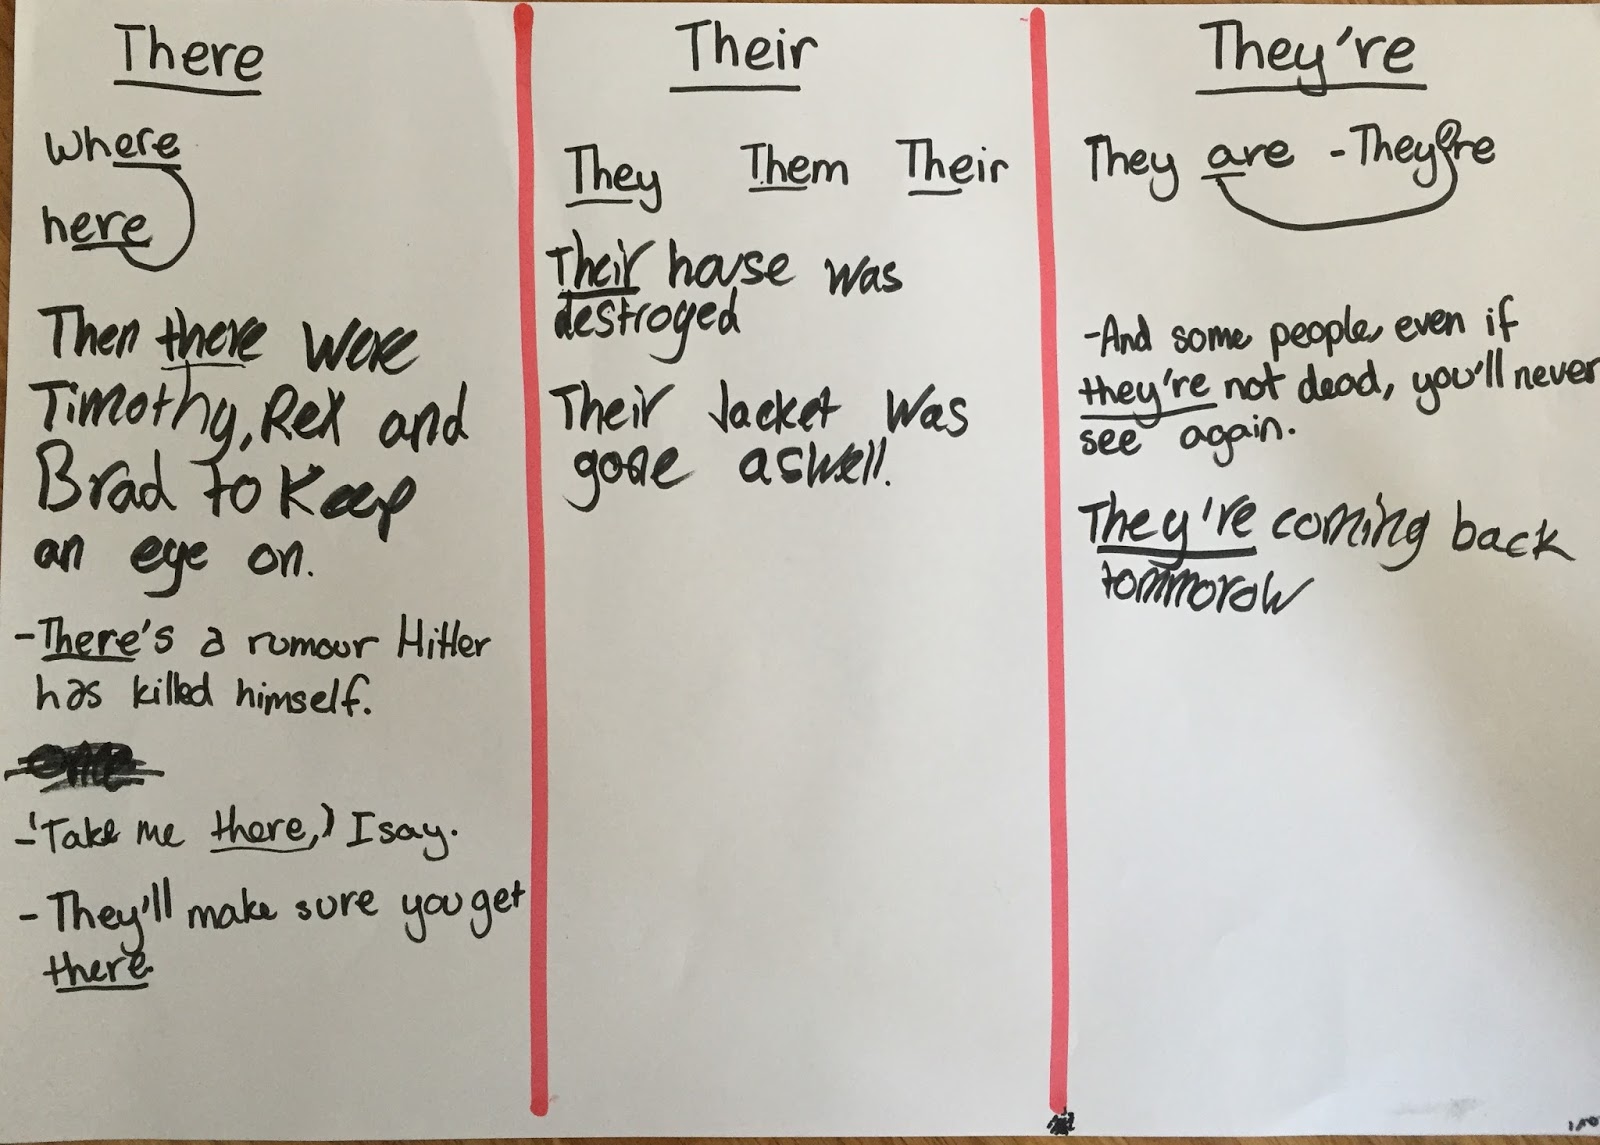 There
where
here
Then there were
Timothy, Rex and
Brad to Keep
an eye on.
-There's a rumour Hitler
has killed himself.
-'Take me there,' I say.
-They'll make sure you get
there.
Their
They Them Their
Their house was
destroyed
Their Jacket was
gone aswell.
They're
They are -They're
-And some people, even if
they're not dead, you'll never
see again.
They're coming back
tommorow